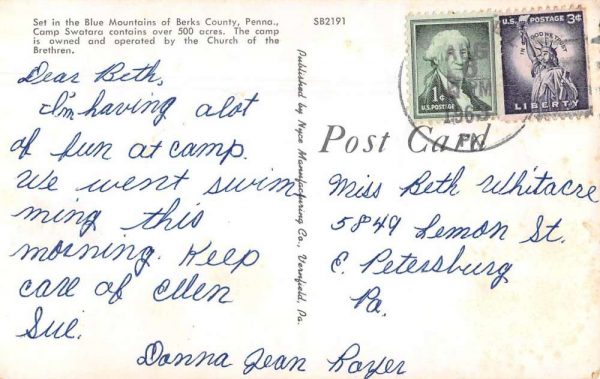 Set in the Blue Mountains of Berks County, Penna.,
Camp Swatara contains over 500 acres. The camp
is owned and operated by the Church of the
Brethren.
SB2191
Dear Beth,
I'm having a lot
of fun at camp.
We went swim
ming this
morning. Keep
care of Ellen
Sue.
Donna Jean Royer
Published by Nyce Manufacturing Co., Vernfield, Pa.
Post Card
1¢
U.S. POSTAGE
U.S. POSTAGE 3¢
IN GOD WE TRUST
LIBERTY
PM
PA
Miss Beth Whitacre
5849 Lemon St.
E. Petersburg
Pa.